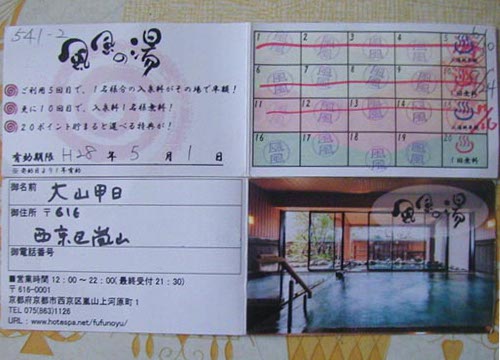 541-2
風風の湯
ご利用5回目で、1名様分の入泉料がその場で半額!
更に10回目で、入泉料1名様無料!
20ポイント貯まると選べる特典が!
有効期限 H28年5月1日
1 2 3 4 5
6 7 8 9 10
1回無料
11 12 13 14 15
16 17 18 19 20
1回無料
御名前 大山甲日
御住所 〒616
西京区嵐山
御電話番号
■営業時間 12:00〜22:00(最終受付21:30)
〒616-0001
京都府京都市西京区嵐山上河原町1
TEL 075(863)1126
URL:www.hotespa.net/fufunoyu/
風風の湯